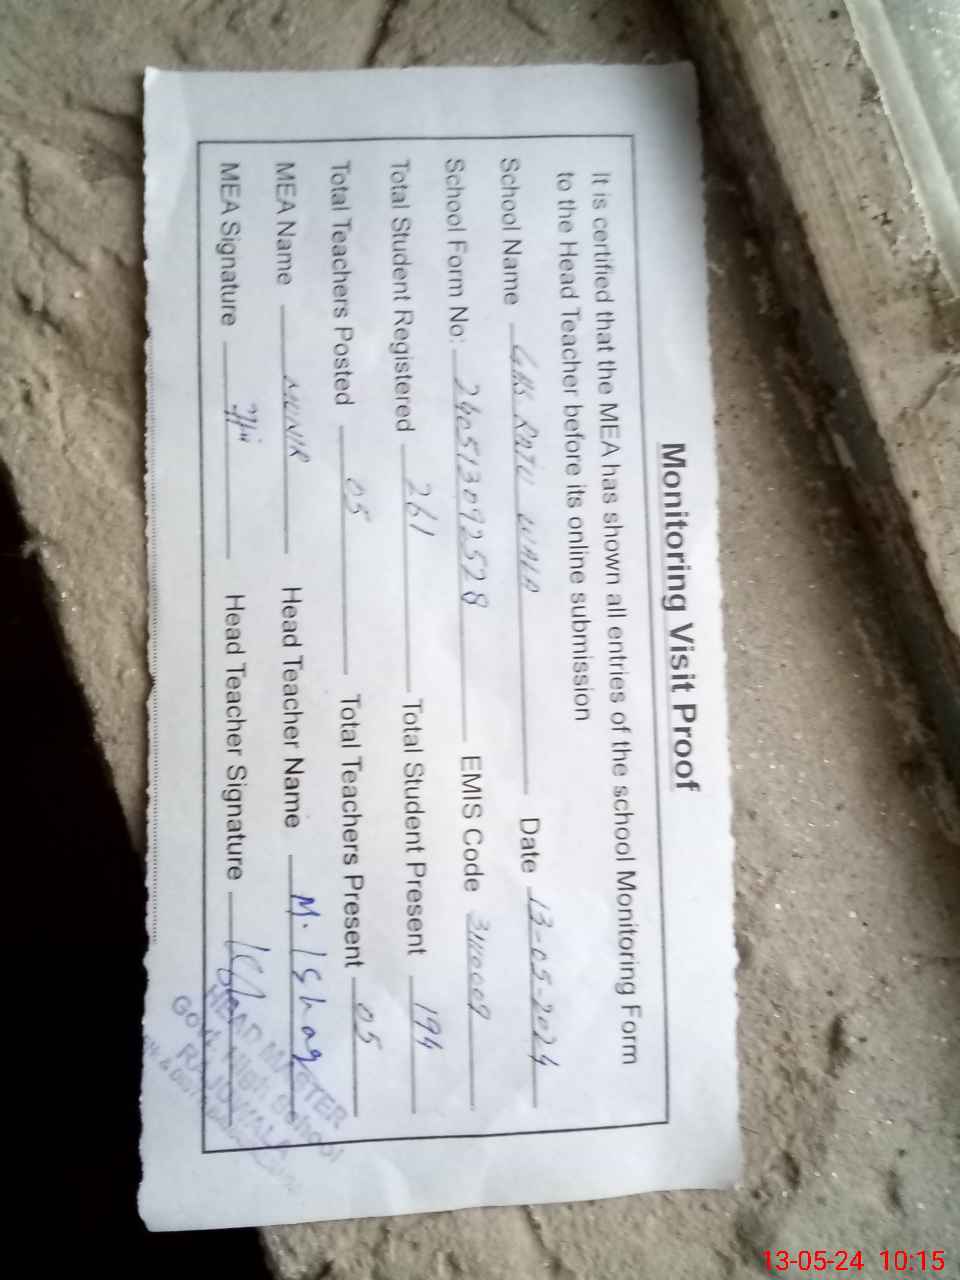 Monitoring Visit Proof
It is certified that the MEA has shown all entries of the school Monitoring Form
to the Head Teacher before its online submission
School Name GHS RAJU WALA Date 13-05-2024
School Form No: 240513092528 EMIS Code
Total Student Registered 261 Total Student Present 194
Total Teachers Posted 05 Total Teachers Present 05
MEA Name MUNIR Head Teacher Name M. Ishaq
MEA Signature Head Teacher Signature
HEAD MASTER
Govt. High School
RAJUWALA
13-05-24 10:15